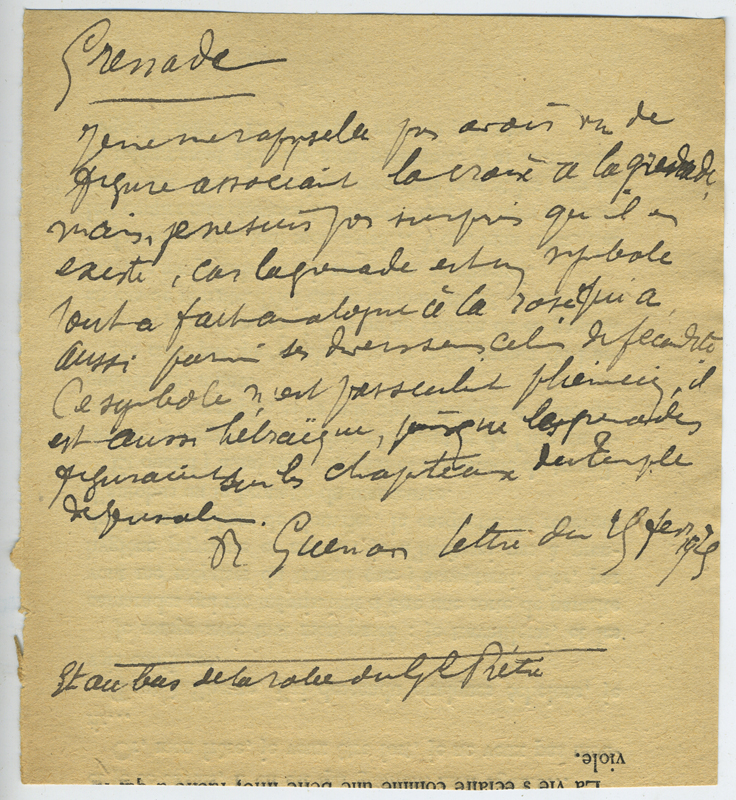 Grenade
Je ne me rappelle pas avoir vu de
figure associant la croix à la grenade,
mais je ne suis pas surpris qu'il en
existe, car la grenade est un symbole
tout à fait analogue à la rose qui a
aussi parmi ses divers sens celui de fécondité
Ce symbole n'est pas seulet phénicien, il
est aussi hébraïque, puisque les grenades
figuraient sur les chapiteaux du Temple
de Jérusalem.
R Guenon lettre du 25 fevr 1925
Et au bas de la robe du Gd Prêtre
viole.
La vie s'éclaire comme une